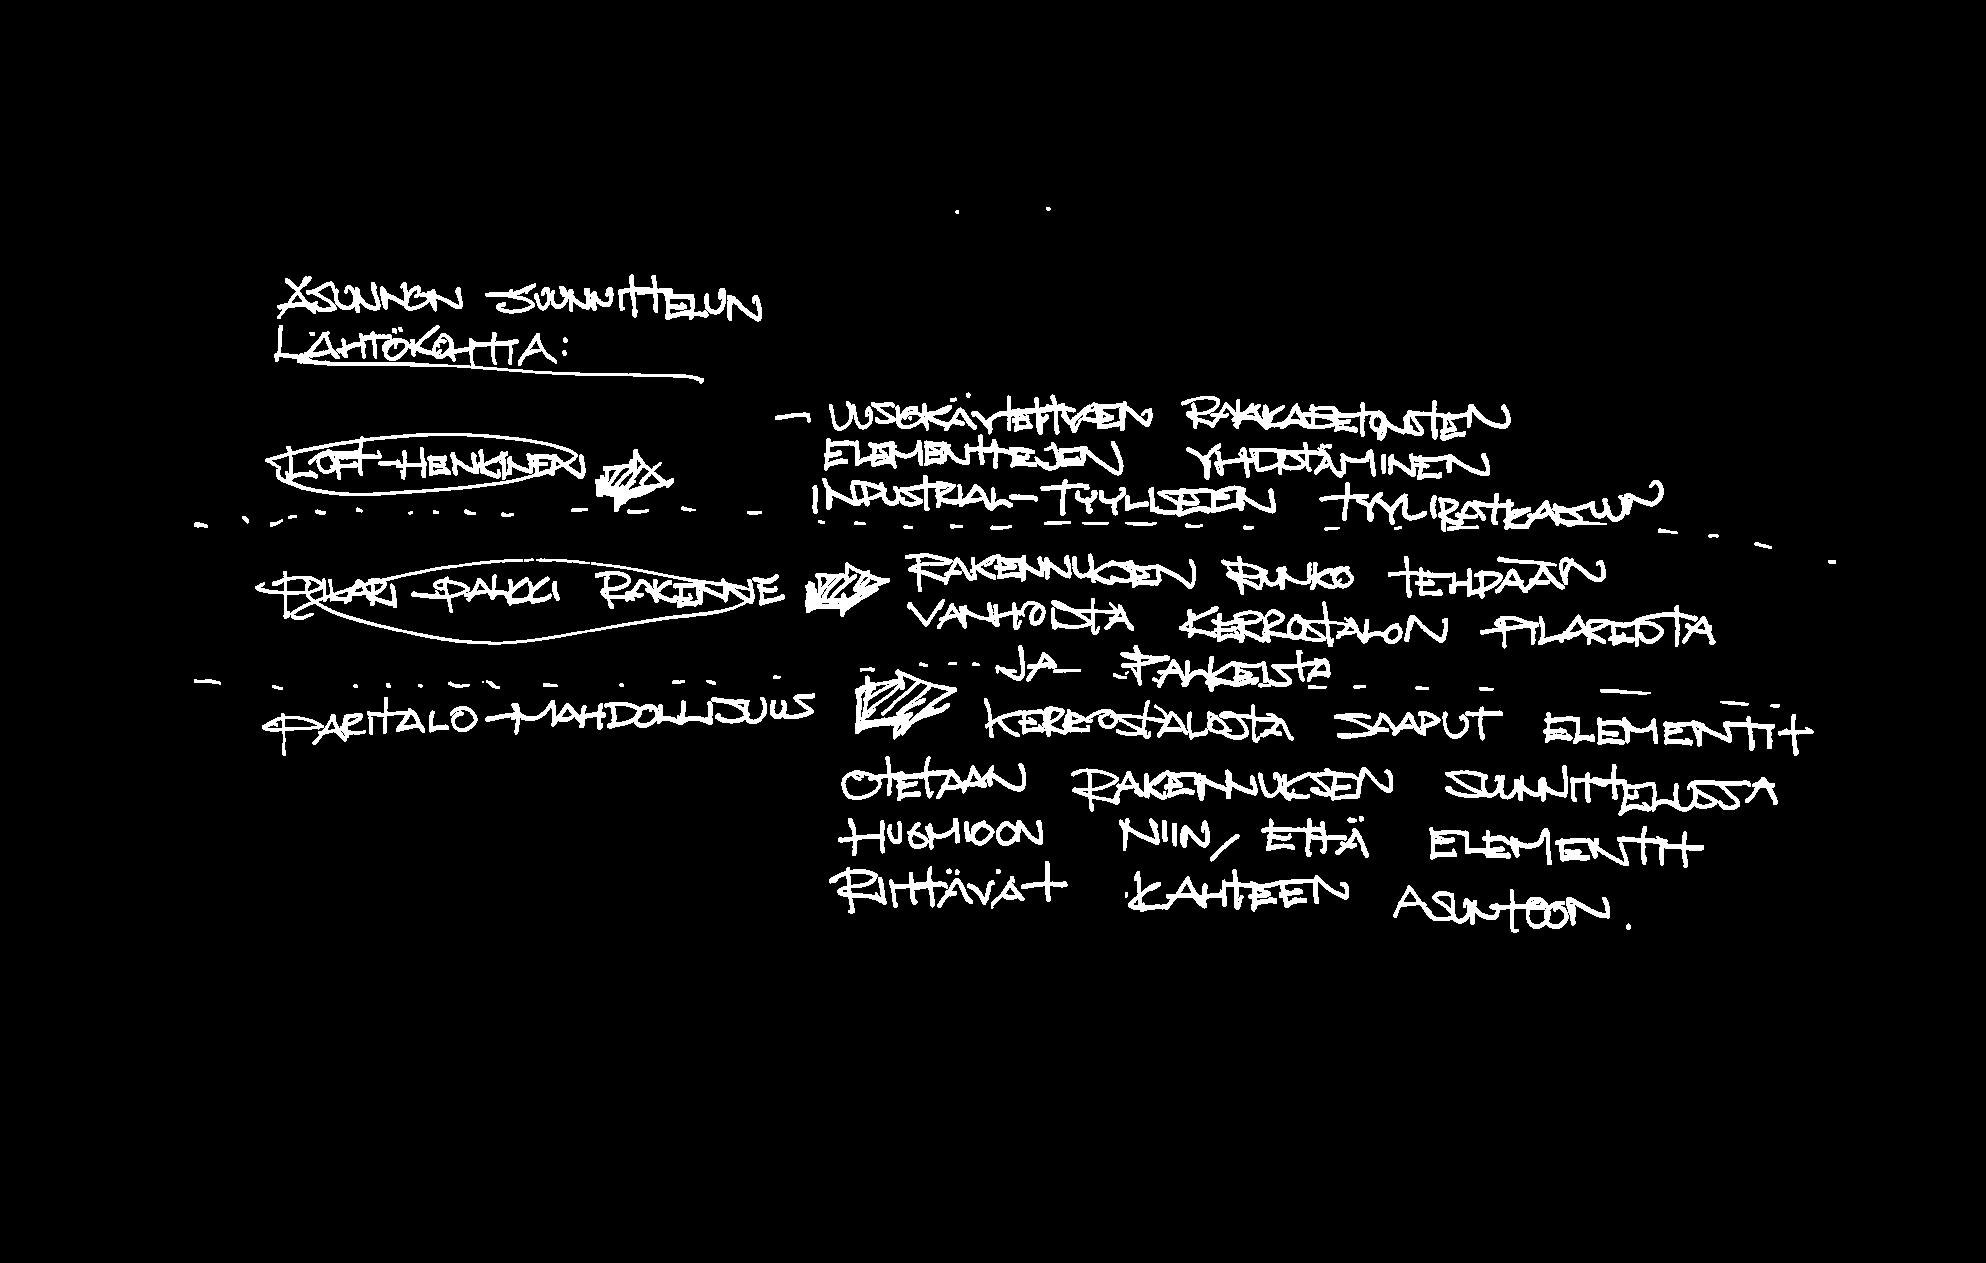 ASUNNON SUUNNITTELUN
LÄHTÖKOHTIA:
LOFT-HENKINEN
- UUSIOKÄYTETTÄVIEN RAAKABETONISTEN
ELEMENTTEJEN YHDISTÄMINEN
INDUSTRIAL-TYYLISEEN TYYLIRATKAISUUN
PILARI-PALKKI RAKENNE
RAKENNUKSEN RUNKO TEHDÄÄN
VANHOISTA KERROSTALON PILAREISTA
JA PALKEISTA
PARITALO-MAHDOLLISUUS
KERROSTALOSTA SAAPUT ELEMENTIT
OTETAAN RAKENNUKSEN SUUNNITTELUSSA
HUOMIOON NIIN, ETTÄ ELEMENTIT
RIITTÄVÄT KAHTEEN ASUNTOON.